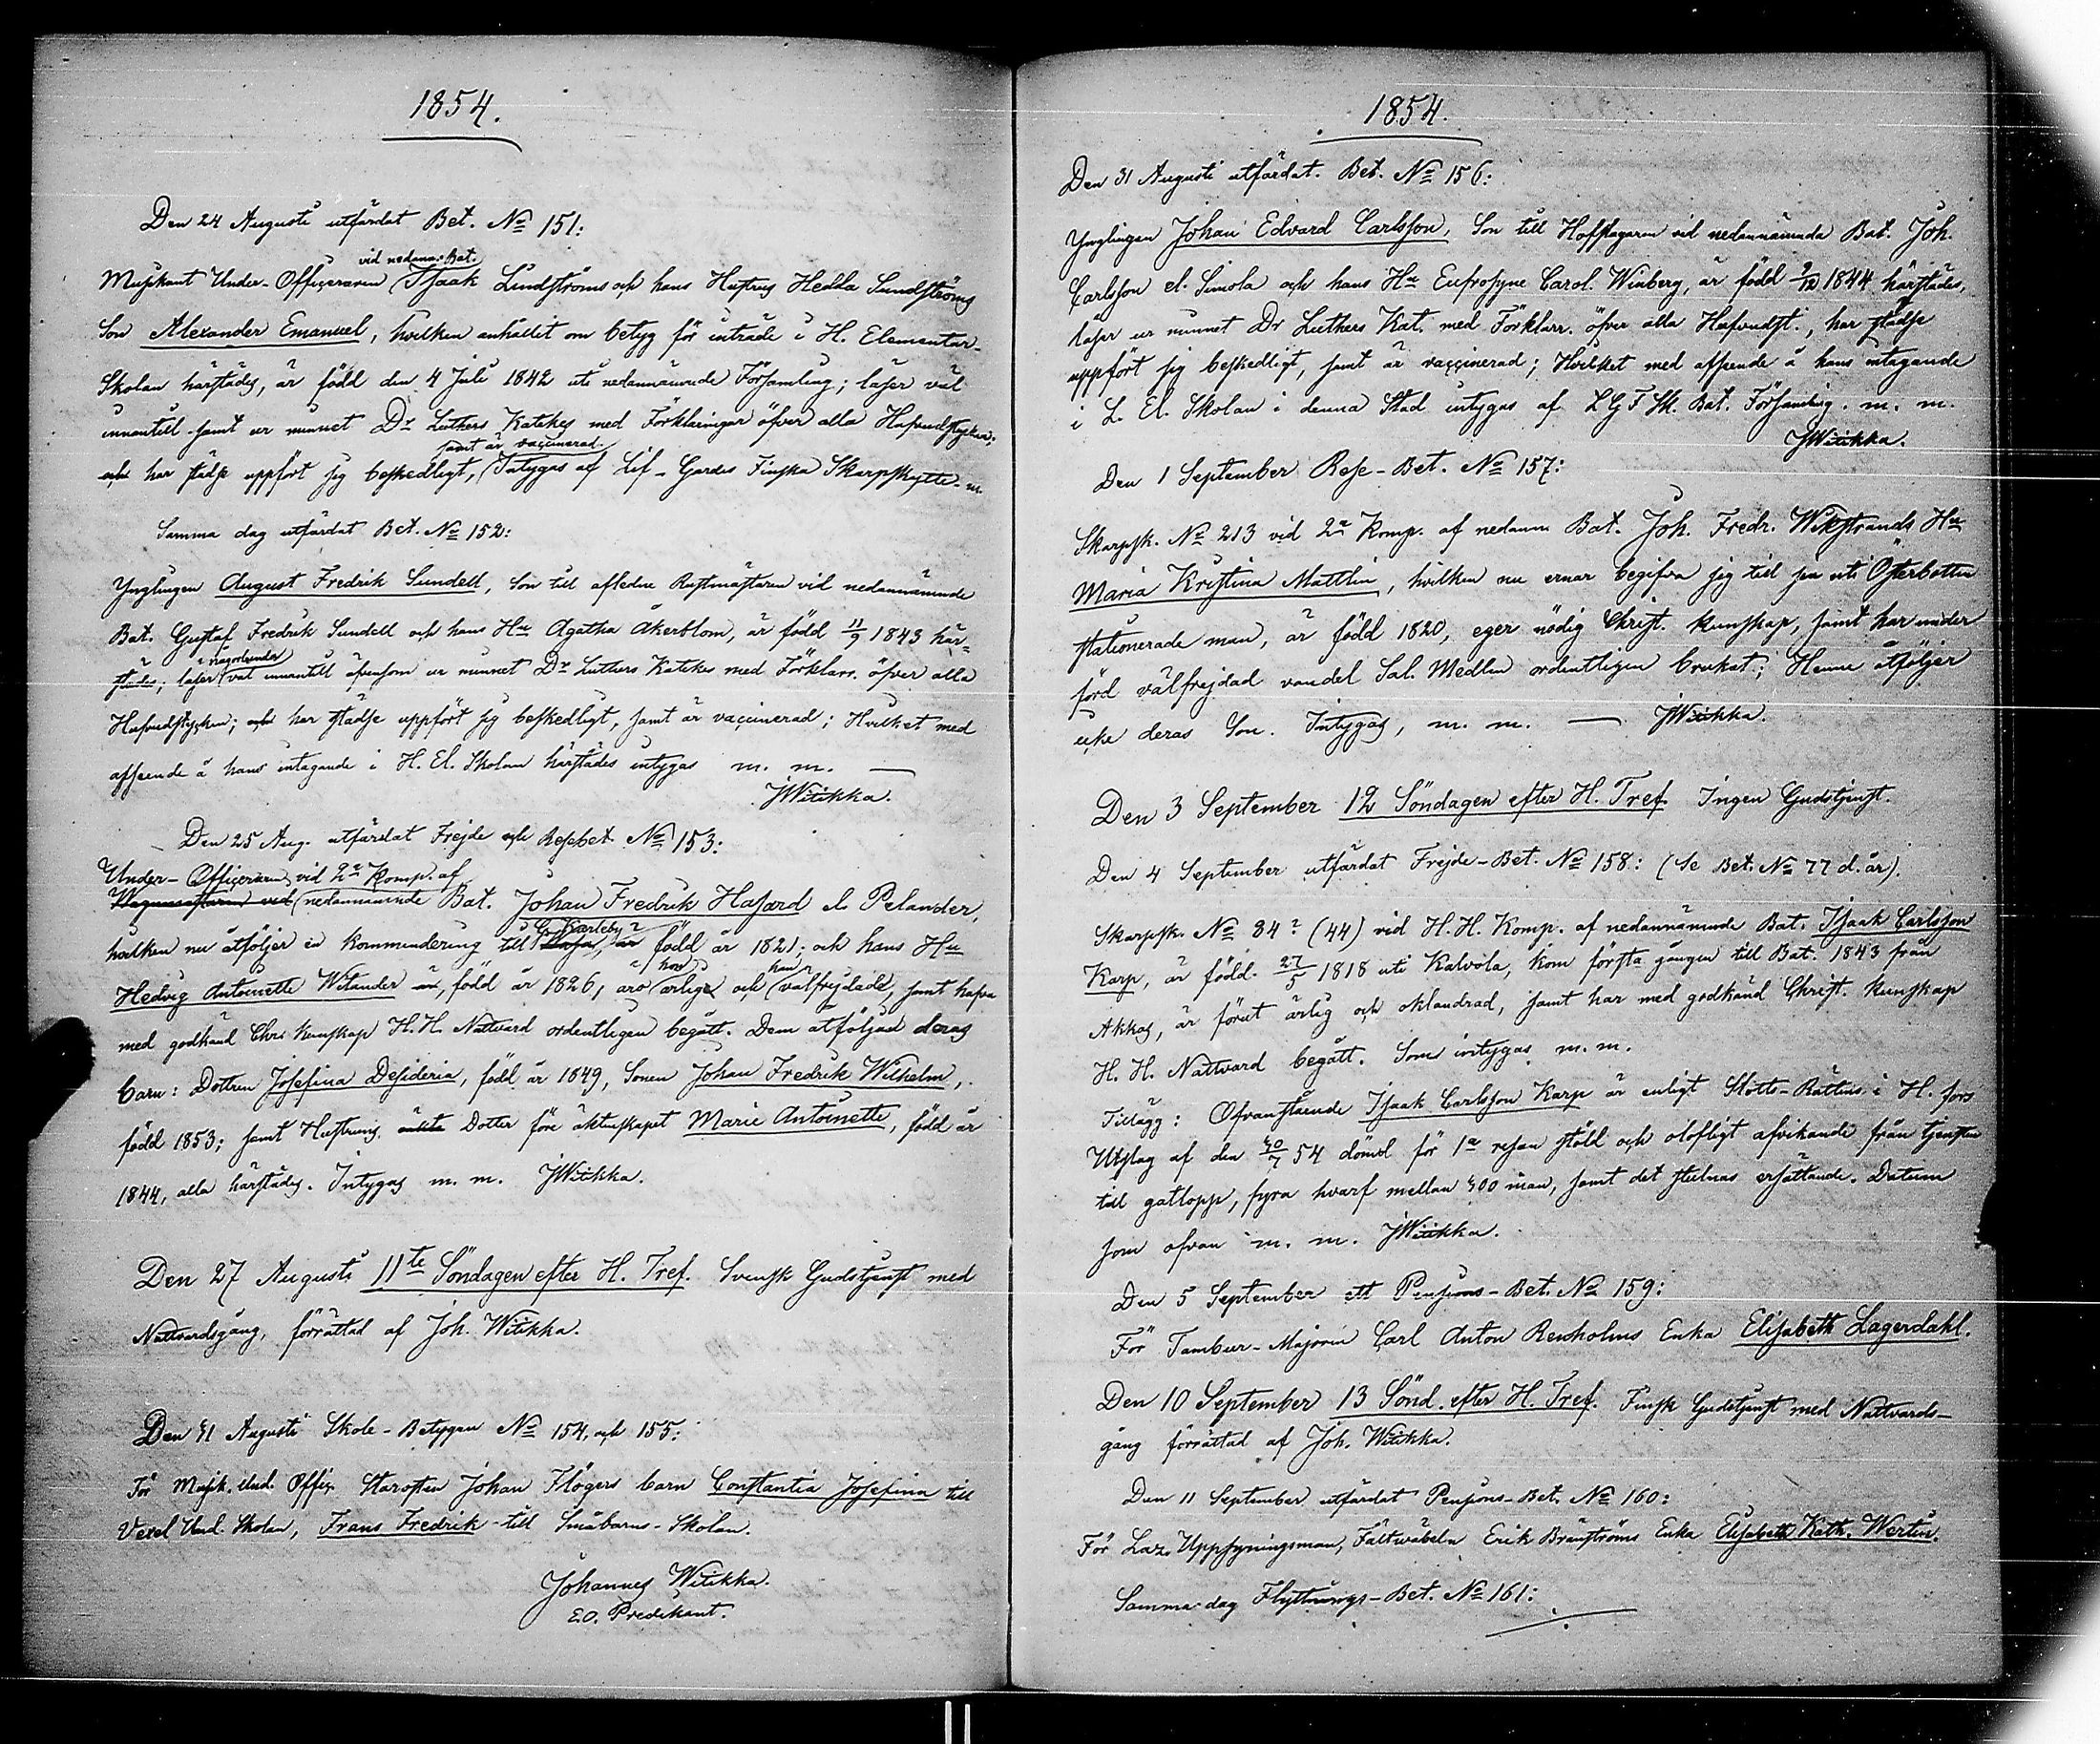 1854.
Den 24 Augusti utfärdat Bet. No 151:
vid nedann. Bat.
Musikant Under-Officeraren Isaak Lindströms och hans Hustrus Hedda Sundströms
Son Alexander Emanuel, hvilken anhållit om betyg för inträde i H. Elementar-
Skolan härstädes, är född den 4 Juli 1842 uti nedannämnde Församling; läser väl
innantill samt ur minnet Dr Luthers Kateches med Förklaringar öfver alla Hufvudstycken;
samt är vaccinerad.
och har städse uppfört sig beskedligt, Intygas af Lif-Gardes Finska Skarpskytte- m.
Samma dag utfärdat Bet. No 152:
Ynglingen August Fredrik Sundell, Son till aflidne Rustmästaren vid nedannämnde
Bat. Gustaf Fredrik Sundell och hans Hu Agatha Åkerblom, är född 11/9 1843 här-
någorlunda
städes; läser väl innantill äfvensom ur minnet Dr Luthers Kateches med Förklarr. öfver alla
Hufvudstycken; och har städse uppfört sig beskedligt, samt är vaccinerad; Hvilket med
afseende å hans intagande i H. El. Skolan härstädes intygas m. m. —
JWitikka.
Den 25 Aug. utfärdat Frejde och Resebet. No 153:
Under-Officeraren vid 2a Komp. af
Wagnmästaren vid nedannämnde Bat. Johan Fredrik Hasard el. Pelander,
G. Karleby
hvilken nu åtföljer en kommendering till Wasa, är född år 1821; och hans Hu
hon han
Hedvig Antoinette Witander är, född år 1826, äro ärliga och välfrejdade, samt hafva
med godkänd Chri. kunskap H. H. Nattvard ordentligen begått. Dem åtföljer deras
barn: Dottren Josefina Desideria, född år 1849, Sonen Johan Fredrik Wilhelm,
född 1853; samt Hustruns oäkta Dotter före äktenskapet Marie Antoinette, född år
1844, alla härstädes. Intygas m. m. JWitikka.
Den 27 Augusti 11te Söndagen efter H. Tref. Svensk Gudstjenst med
Nattvardsgång, förrättad af Joh. Witikka.
Den 31 Augusti Skole-Betygen No 154, och 155:
För Musik. Und. Offic. Starosten Johan Flögers barn Constantia Josefina till
Vexel Und. Skolan, Frans Fredrik till Småbarns-Skolan.
Johannes Witikka.
E.O. Predikant.
1854.
Den 31 Augusti utfärdat. Bet. No 156:
Ynglingen Johan Edvard Carlsson, Son till Hofslagaren vid nedannämnda Bat. Joh.
Carlsson el. Simola och hans Hu Eufrosyne Carol. Winberg, är född 9/12 1844 härstädes,
läser ur minnet Dr Luthers Kat. med Förklarr. öfver alla Hufvudst., har städse
uppfört sig beskedligt, samt är vaccinerad; Hvilket med afseende å hans intagande
i L. El. Skolan i denna Stad intygas af L G F Sk. Bat. Församling. m. m.
JWitikka.
Den 1 September Rese-Bet. No 157:
Skarpsk. No 213 vid 2a Komp. af nedann. Bat. Joh. Fredr. Wikstrands Hu
Maria Kristina Mattlin, hvilken nu ernar begifva sig till sin uti Österbotten
stationerade man, är född 1820, eger nödig Christ. kunskap, samt har under
förd välfrejdad vandel Sal. Medlen ordentligen brukat; Henne åtföljer
ücke deras Son. Intygas, m. m. — JWitikka.
Den 3 September 12 Söndagen efter H. Tref. Ingen Gudstjenst.
Den 4 September utfärdat Frejde-Bet. No 158: (Se Bet. No 77 d. år).
Skarpsk. No 84? (44) vid H. H. Komp. af nedannämnde Bat. Isaak Carlsson
Karp, är född 27/5 1818 uti Kalvola, kom första gången till Bat. 1843 från
Akkas, är förut ärlig och oklandrad, samt har med godkänd Christ. kunskap
H. H. Nattvard begått. Som intygas m. m.
Tillägg: Ofvanstående Isaak Carlsson Karp är enligt Slotts-Rättens i H.fors
Utslag af den 20/7 54 dömd för 1a resan stöld och olofligt afvikande från tjensten
till gatlopp, fyra hvarf mellan 300 man, samt det stulnas ersättande. Datum
som ofvan m. m. JWitikka.
Den 5 September ett Pensions-Bet. No 159:
För Tambur-Majoren Carl Anton Renholms Enka Elisabeth Lagerdahl.
Den 10 September 13 Sönd. efter H. Tref. Finsk Gudstjenst med Nattvards-
gång förrättad af Joh. Witikka.
Den 11 September utfärdat Pensions-Bet. No 160:
För Laz. Uppsyningsman, Fältwäbeln Erik Bränströms Enka Elisabeth Kath. Wertin.
Samma dag Flyttnings-Bet. No 161: